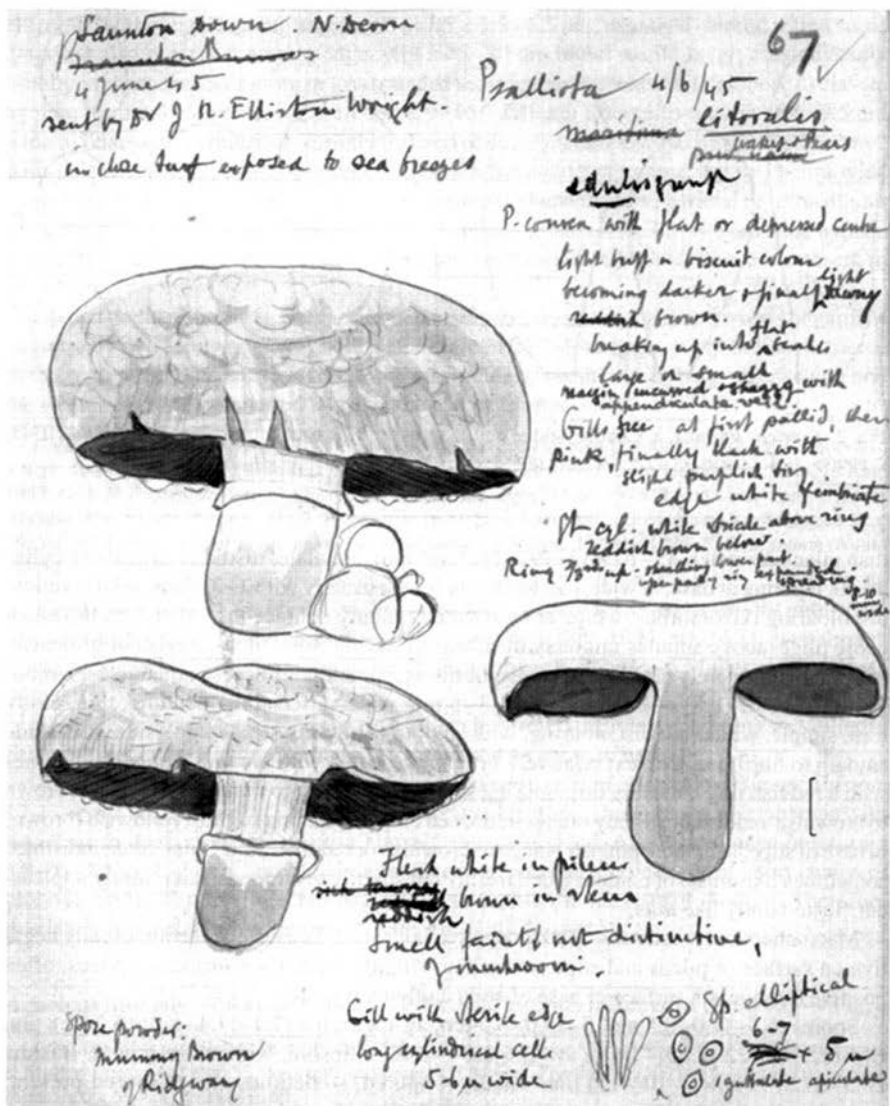 Saunton Down N. Devon
4 June 45
sent by Dr J N. Elliston Wright.
in close turf exposed to sea breezes
67
Psalliota 4/6/45
maritima litoralis
Wakef & Pears
edulis group
P. convex with flat or depressed centre
light buff or biscuit colour
becoming darker & finally light
reddish brown
breaking up into flat scales
large or small
margin incurved shaggy with
appendiculate veil
Gills free at first pallid, then
pink, finally black with
slight purplish
edge white fimbriate
St. cyl. white striate above ring
reddish brown below
Ring 2/3rds up, sheathing lower part
upper part
spreading
8-10
wide
Flesh white in pileus
reddish brown in stem
Smell faint, not distinctive
of mushroom.
Spore powder,
Mummy Brown
of Ridgway
Gill with sterile edge
long cylindrical cells
5-6 µ wide
Sp. elliptical
6-7
x 5
1 guttulate apiculate